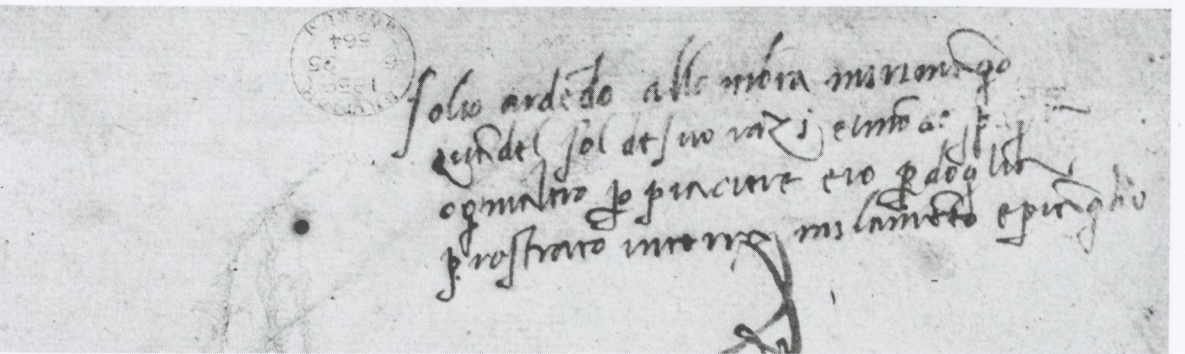 solio ardēdo allonbra mirimāgo
quādel sol de suo razi elmōdo
ognialtro p piaciere eio p doglia
prostrato interra mi lamēto epiāgho